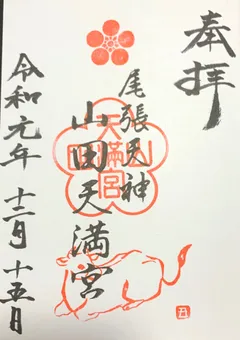 奉拝
尾張天神
山田天満宮
令和元年 十二月 十五日
山田天満宮